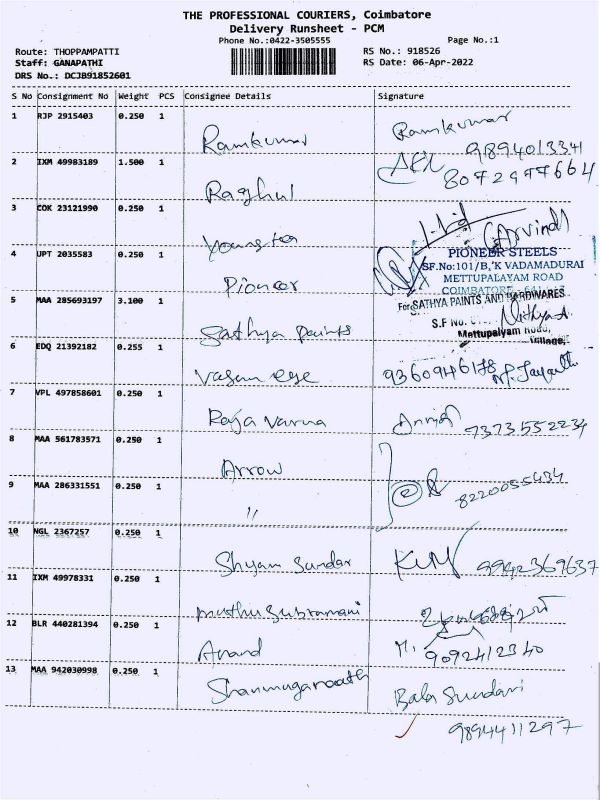 THE PROFESSIONAL COURIERS, Coimbatore
Delivery Runsheet - PCM
Phone No.:0422-3505555 Page No.:1
Route: THOPPAMPATTI RS No.: 918526
Staff: GANAPATHI RS Date: 06-Apr-2022
DRS No.: DCJB91852601
S No Consignment No Weight PCS Consignee Details Signature
1 RJP 2915403 0.250 1
Ramkumar Ramkumar
9894013341
2 IXM 49983189 1.500 1
Raghul 8072977664
3 COK 23121990 0.250 1
(Arvind)
4 UPT 2035583 0.250 1
Pioneer
PIONEER STEELS
SF.No:101/B, K VADAMADURAI
METTUPALAYAM ROAD
COIMBATORE
5 MAA 285693197 3.100 1
Sathya paints
For SATHYA PAINTS AND HARDWARES
S.F No. Nithya.A
Mettupalyam Road,
Village,
6 EDQ 21392182 0.255 1
Vasan eye 9360946178
7 VPL 497858601 0.250 1
Raja Varma 7373552234
8 MAA 561783571 0.250 1
Arrow
9 MAA 286331551 0.250 1
" 8220055434
10 NGL 2367257 0.250 1
Shyam Sundar 9942369637
11 IXM 49978331 0.250 1
muthu Subramani
12 BLR 440281394 0.250 1
Anand M. 9092412340
13 MAA 942030998 0.250 1
Shanmuganaath Bala Sundari
9894411297